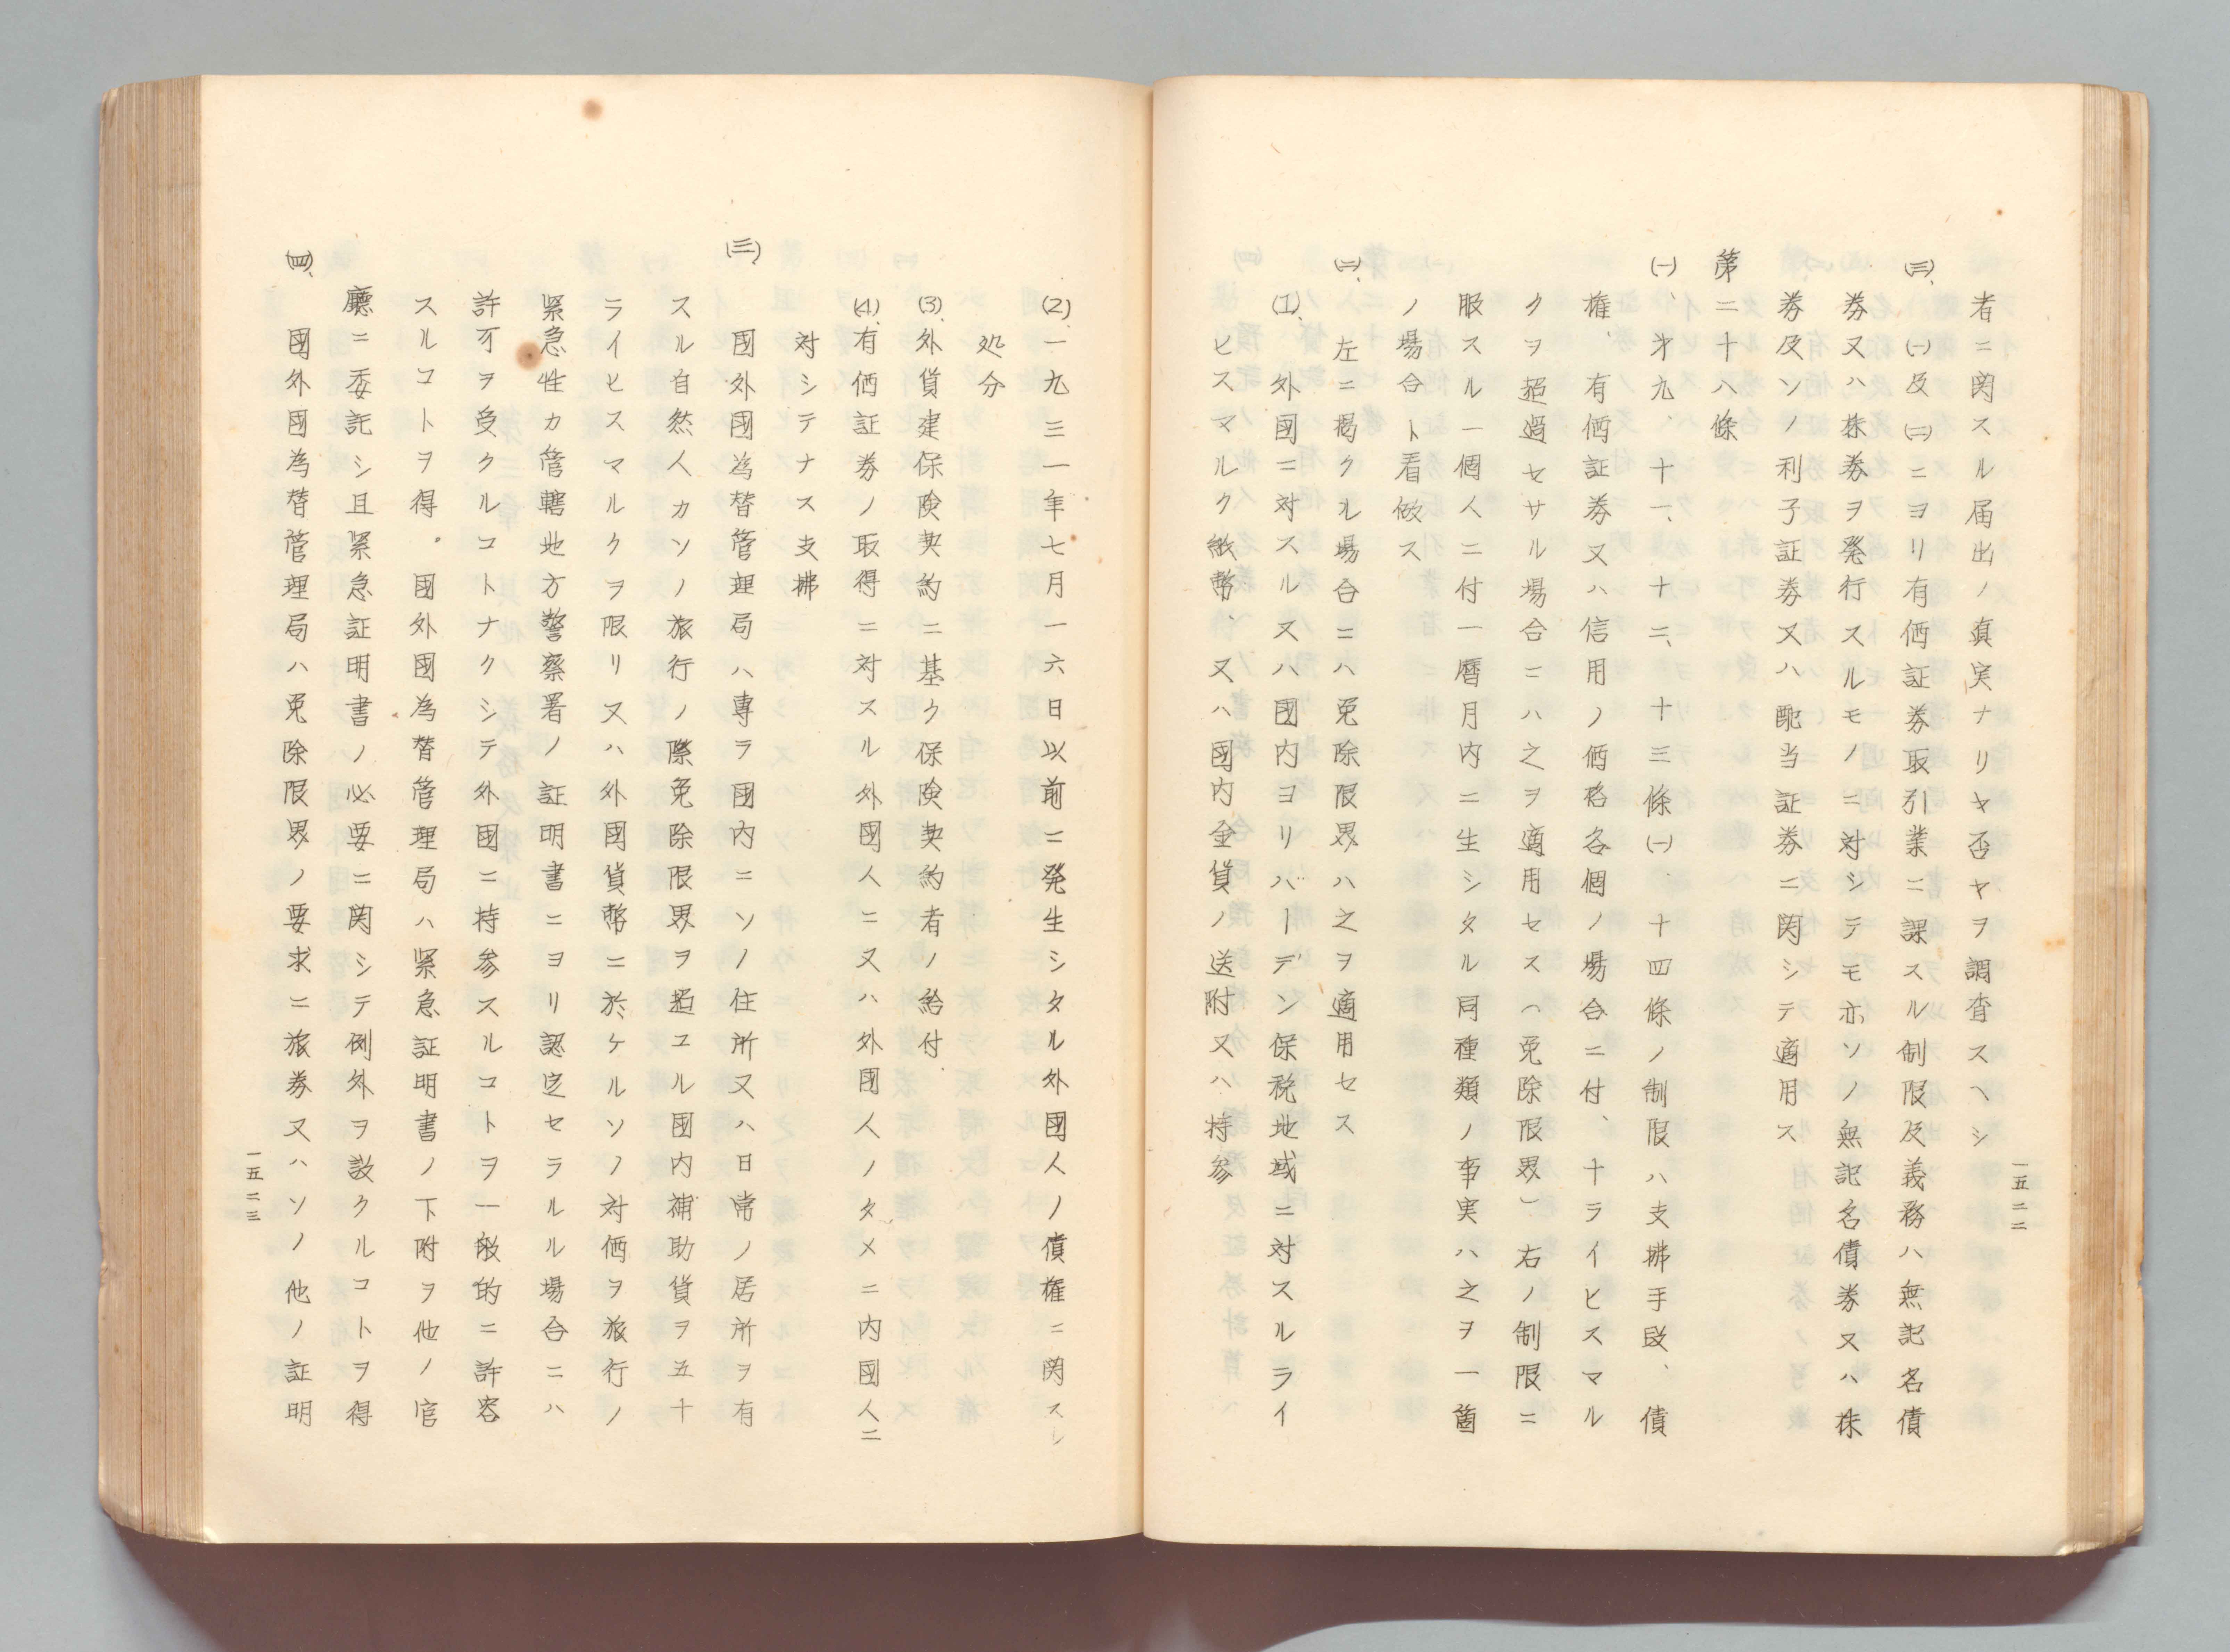 一五二二
者ニ関スル届出ノ真実ナリヤ否ヤヲ調査スヘシ
(三)、(一)及(二)ニヨリ有価証券取引業ニ課スル制限及義務ハ無記名債
券又ハ株券ヲ発行スルモノニ対シテモ亦ソノ無記名債券又ハ株
券及ソノ利子証券又ハ配当証券ニ関シテ適用ス
第二十八條
(一)、才九、十一、十二、十三條(一)、十四條ノ制限ハ支拂手段、債
権、有価証券又ハ信用ノ価格各個ノ場合ニ付、十ライヒスマル
クヲ超過セサル場合ニハ之ヲ適用セス(免除限界)右ノ制限ニ
服スル一個人ニ付一暦月内ニ生シタル同種類ノ事実ハ之ヲ一箇
ノ場合ト看做ス
(二)、左ニ掲クル場合ニハ免除限界ハ之ヲ適用セス
(1)、外國ニ対スル又ハ國内ヨリバーデン保税地域ニ対スルライ
ヒスマルク紙幣、又ハ國内金貨ノ送附又ハ持参
(2)、一九三一年七月一六日以前ニ発生シタル外國人ノ債権ニ関スル
処分
(3)、外貨建保険契約ニ基ク保険契約者ノ給付、
(4)、有価証券ノ取得ニ対スル外國人ニ又ハ外國人ノタメニ内國人ニ
対シテナス支拂
(三)、國外國為替管理局ハ專ラ國内ニソノ住所又ハ日常ノ居所ヲ有
スル自然人カソノ旅行ノ際免除限界ヲ超ユル國内補助貨ヲ五十
ライヒスマルクヲ限リ又ハ外國貨幣ニ於ケルソノ対価ヲ旅行ノ
緊急性カ管轄地方警察署ノ証明書ニヨリ認定セラルル場合ニハ
許可ヲ受クルコトナクシテ外國ニ持参スルコトヲ一般的ニ許容
スルコトヲ得。國外國為替管理局ハ緊急証明書ノ下附ヲ他ノ官
廳ニ委託シ且緊急証明書ノ必要ニ関シテ例外ヲ設クルコトヲ得
(四)、國外國為替管理局ハ免除限界ノ要求ニ旅券又ハソノ他ノ証明
一五二三